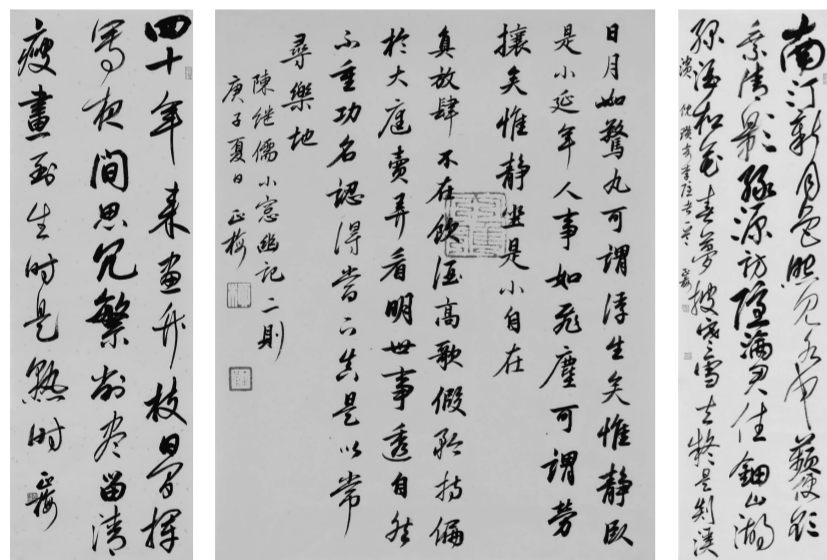 南汀新月色照見水中蘋便欲
乘清影緣源訪隱淪君住鈿山湖
綠酒松花春夢披寒雪去疑是剡溪
濱 倪瓚寄李隱者一首
日月如驚丸可謂浮生矣惟靜臥
是小延年人事如飛塵可謂勞
攘矣惟靜坐是小自在
真放肆不在飲酒高歌假矜持偏
於大庭賣弄看明世事透自然
不重功名認得當下真是以常
尋樂地
陳继儒小窓幽記二則
庚子夏日正梅
四十年来畫竹枝日間揮
寫夜間思冗繁削盡留清
瘦畫到生時是熟時 正梅